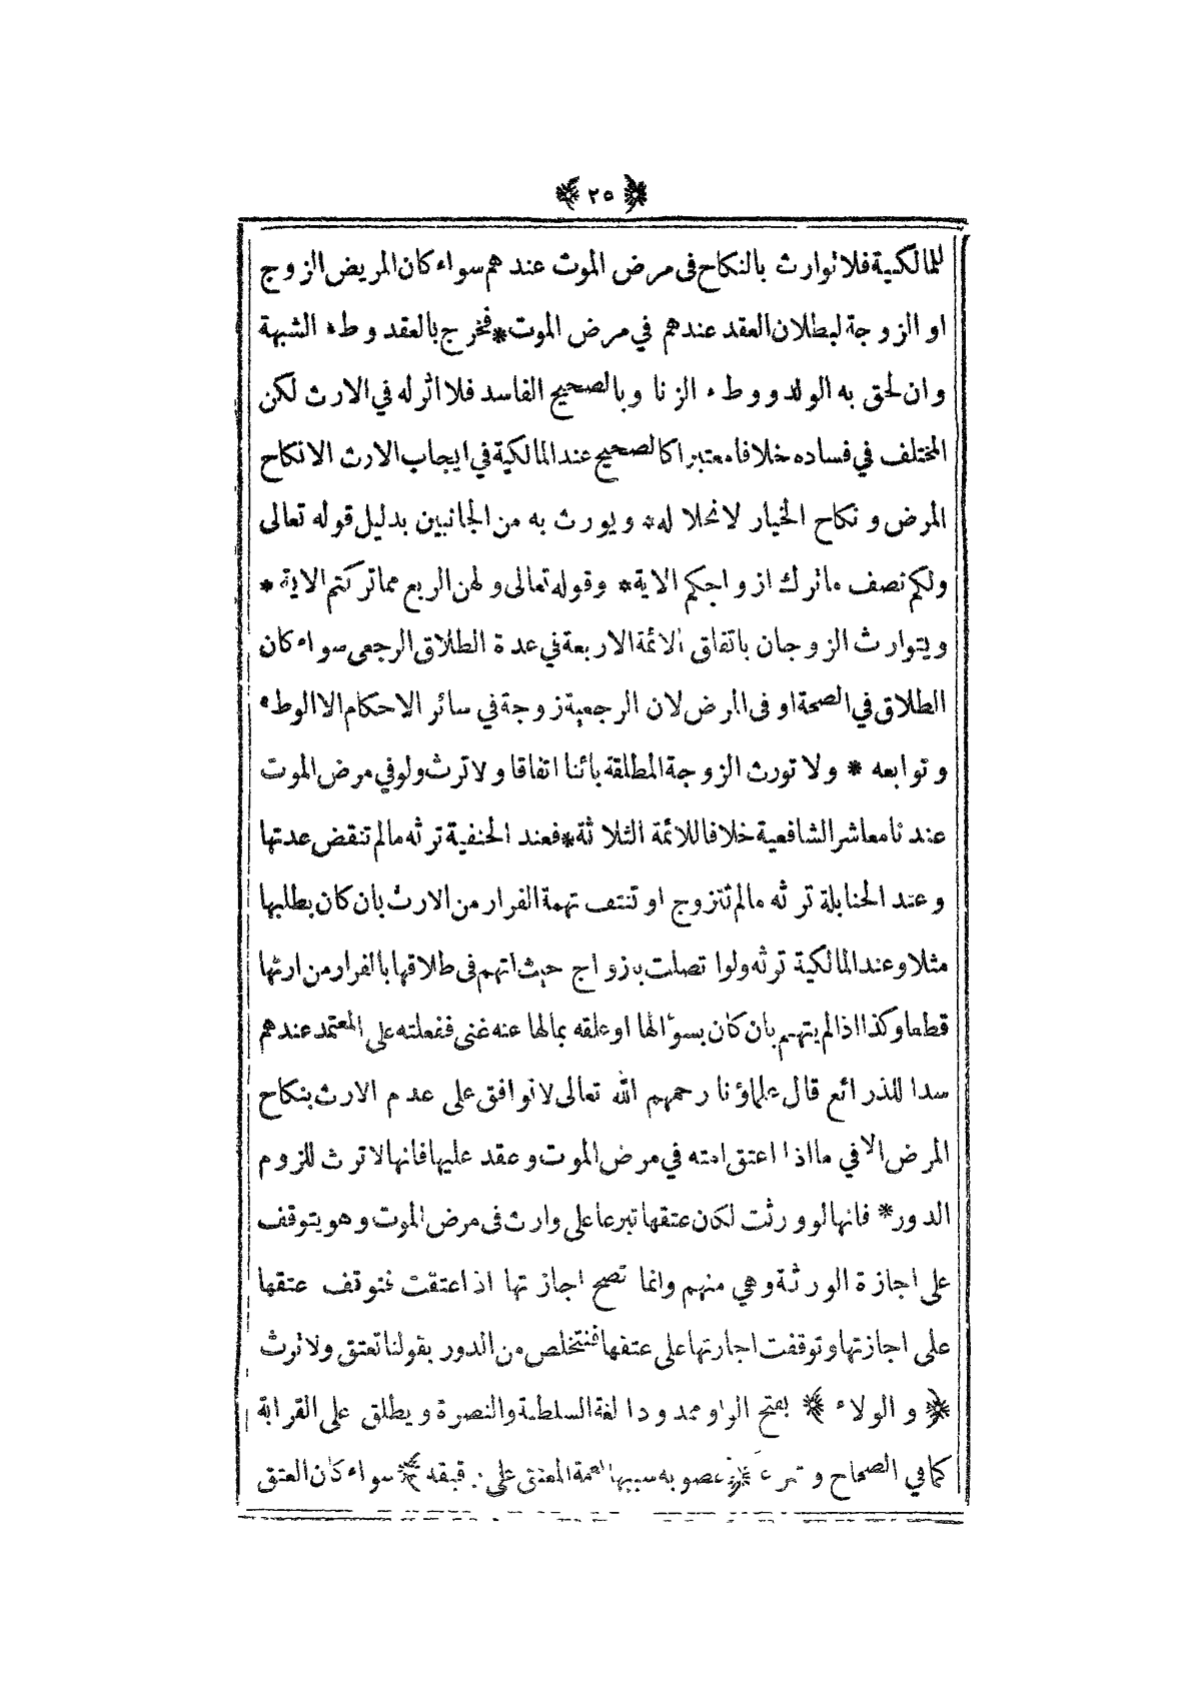 ﴿ ٢٥ ﴾
للمالكية فلا توارث بالنكاح فى مرض الموت عندهم سواء كان المريض الزوج
او الزوجة لبطلان العقد عندهم في مرض الموت * فخرج بالعقد وطء الشبهة
وان لحق به الولد ووطء الزنا وبالصحيح الفاسد فلا اثر له في الارث لكن
المختلف في فساده خلافا معتبرا كالصحيح عند المالكية في ايجاب الارث الا نكاح
المرض و نكاح الخيار لانحلاله * ويورث به من الجانبين بدليل قوله تعالى
ولكم نصف ماترك ازواجكم الاية * وقوله تعالى ولهن الربع مما تركتم الاية *
ويتوارث الزوجان باتفاق الائمة الاربعة في عدة الطلاق الرجعى سواء كان
الطلاق في الصحة او فى المرض لان الرجعية زوجة في سائر الاحكام الا الوطء
وتوابعه * ولا تورث الزوجة المطلقة بائنا اتفاقا ولا ترث ولو في مرض الموت
عندنا معاشر الشافعية خلافا للائمة الثلاثة * فعند الحنفية ترثه مالم تنقض عدتها
وعند الحنابلة ترثه مالم تتزوج او تنتف تهمة الفرار من الارث بان كان بطلبها
مثلا وعند المالكية ترثه ولوا تصلت بازواج حيث اتهم فى طلاقها بالفرار من ارثها
قطعا وكذا اذا لم يتهم بان كان بسؤالها او علقه بمالها عنه غنى ففعلته على المعتمد عندهم
سدا للذرائع قال علماؤنا رحمهم الله تعالى لا نوافق على عدم الارث بنكاح
المرض الا في ما اذا اعتق امته في مرض الموت وعقد عليها فانها لا ترث للزوم
الدور * فانها لو ورثت لكان عتقها تبرعا على وارث فى مرض الموت وهو يتوقف
على اجازة الورثة وهي منهم وانما تصح اجازتها اذا عتقت فتوقف عتقها
على اجازتها وتوقفت اجازتها على عتقها فنتخلص من الدور بقولنا تعتق ولا ترث
﴿ والولاء ﴾ بفتح الواو ممدودا لغة السلطنة والنصرة ويطلق على القرابة
كما في الصحاح و ﴿ عصوبه سببها نعمة المعتق على ﴾ سواء كان العتق